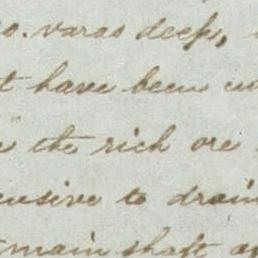 varas deep,
have been
the rich ore
to drain
main shaft